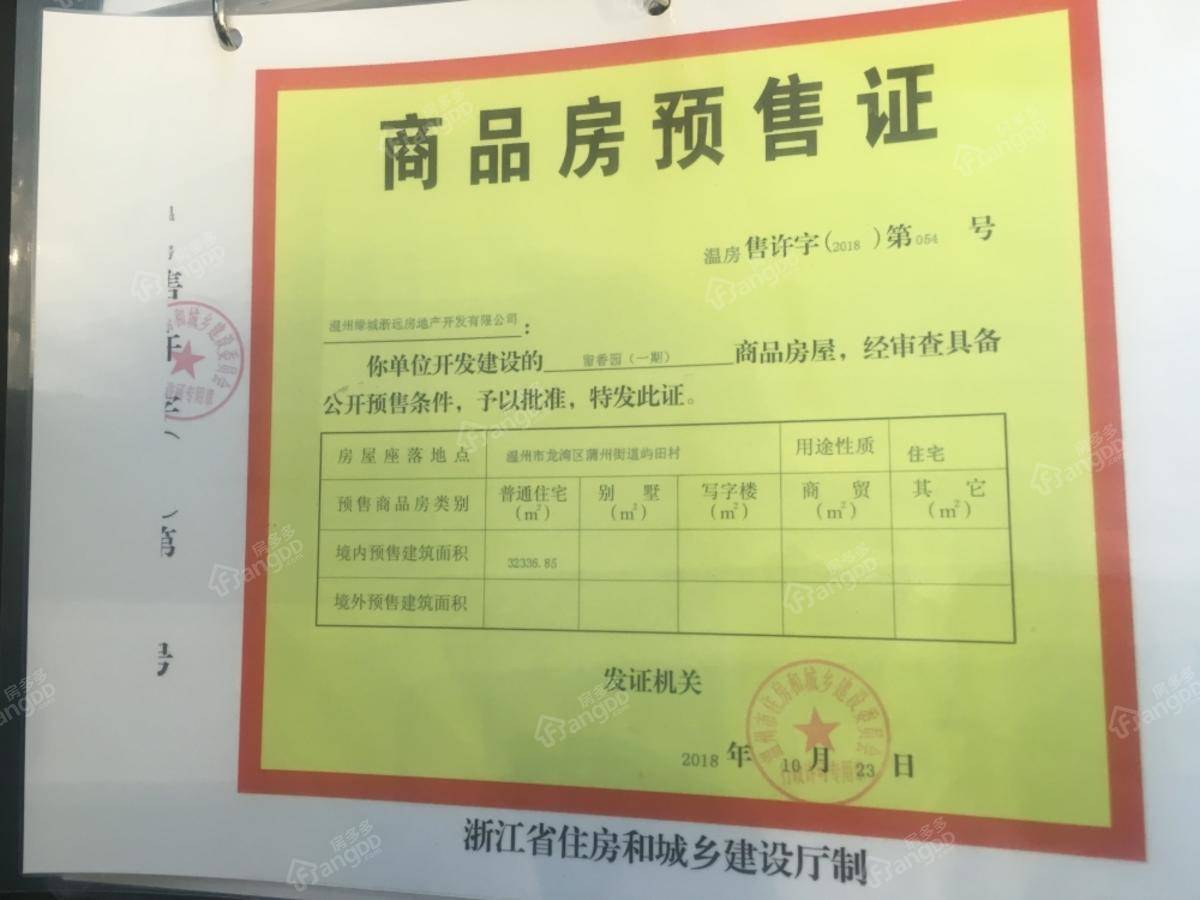 商品房预售证
温房售许字(2018)第054号
温州绿城浙远房地产开发有限公司：
你单位开发建设的留香园（一期）商品房屋，经审查具备
公开预售条件，予以批准，特发此证。
房屋座落地点 温州市龙湾区蒲州街道屿田村 用途性质 住宅
预售商品房类别 普通住宅(㎡) 别墅(㎡) 写字楼(㎡) 商贸(㎡) 其它(㎡)
境内预售建筑面积 32336.85
境外预售建筑面积
发证机关
温州市住房和城乡建设委员会
行政许可专用章
2018年10月23日
浙江省住房和城乡建设厅制
售
许
字
第
号
和城乡建设委员会
许可专用章
房多多
FangDD